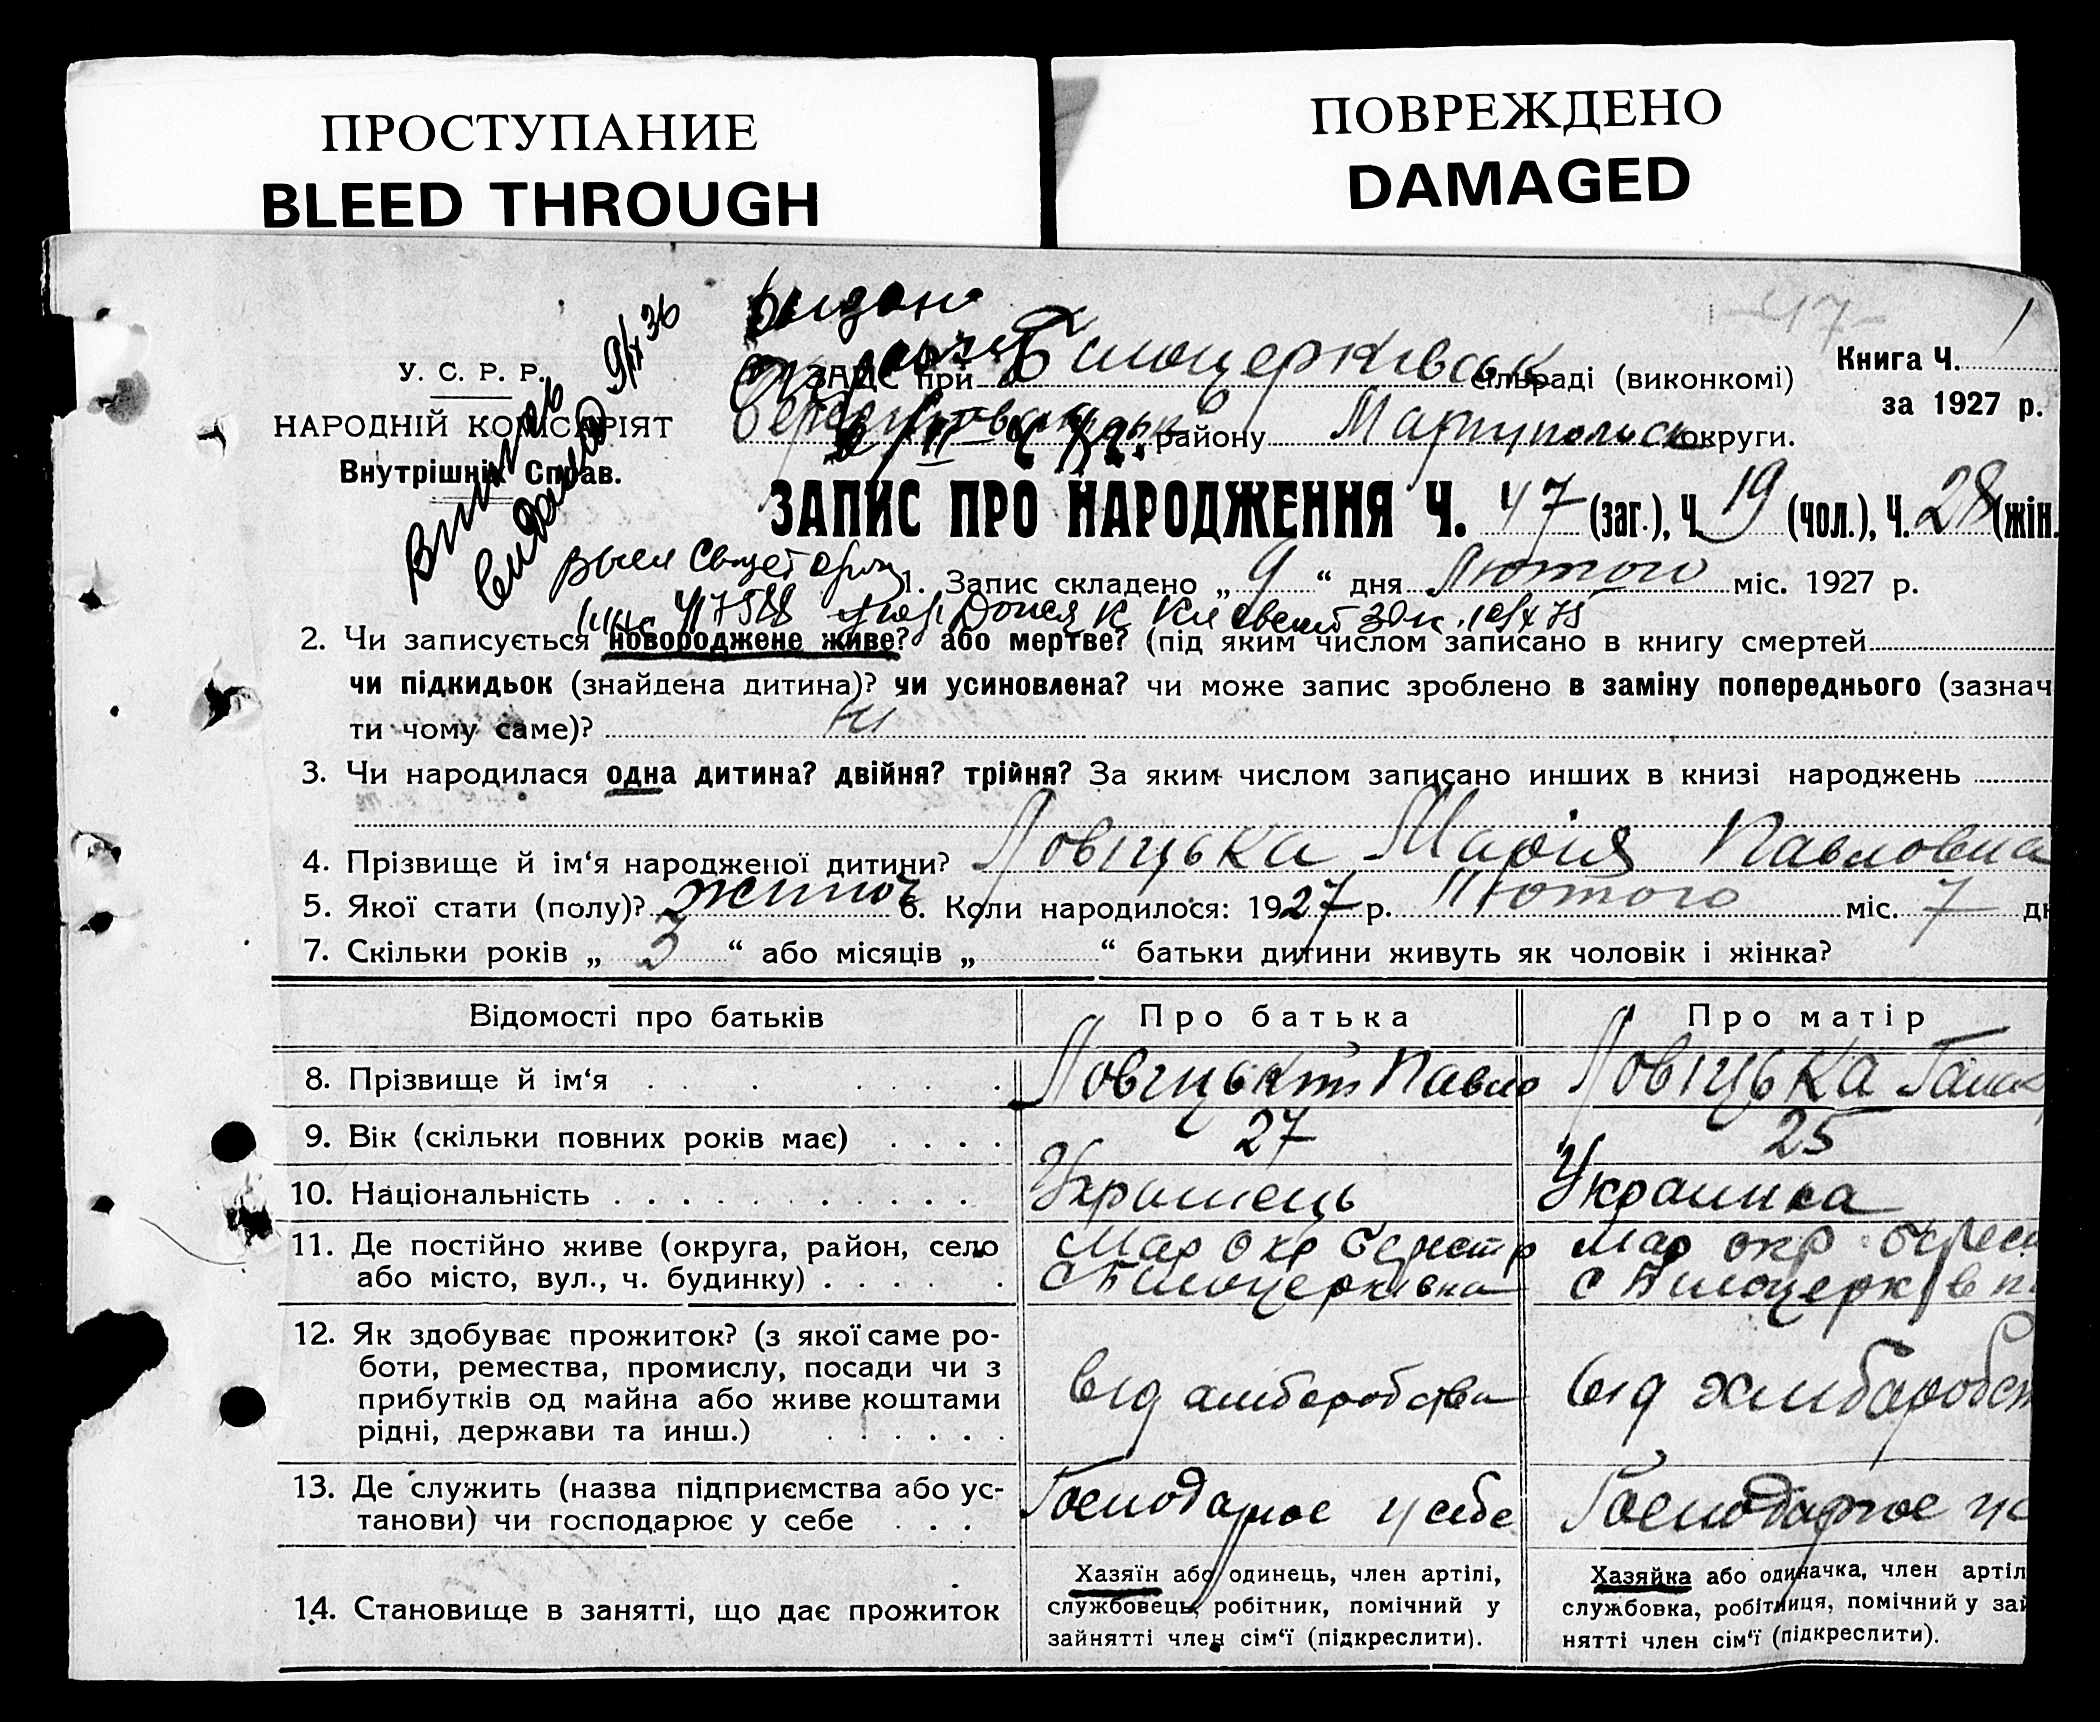 ПРОСТУПАНИЕ
BLEED THROUGH
ПОВРЕЖДЕНО
DAMAGED
-47-
У. С. Р. Р.
НАРОДНІЙ КОМІСАРІЯТ
Внутрішніх Справ.
Витяг
видано 9/IX 36
видан
ЗАГС при Білоцерківськ сільраді (виконкомі)
району Маріупольськ округи.
Книга Ч. 1
за 1927 р.
ЗАПИС ПРО НАРОДЖЕННЯ Ч. 47 (заг.), Ч. 19 (чол.), Ч. 28 (жін.
1. Запис складено „ 9 “ дня Лютого міс. 1927 р.
2. Чи записується новороджене живе? або мертве? (під яким числом записано в книгу смертей
чи підкидьок (знайдена дитина)? чи усиновлена? чи може запис зроблено в заміну попереднього (зазнач
ти чому саме)? Ні
3. Чи народилася одна дитина? двійня? трійня? За яким числом записано инших в книзі народжень
4. Прізвище й ім‘я народженої дитини? Ловіцька Марія Павловна
5. Якої стати (полу)? жіноч 6. Коли народилося: 1927 р. Лютого міс. 7 дн
7. Скільки років „ 3 “ або місяців „ “ батьки дитини живуть як чоловік і жінка?
Відомості про батьків Про батька Про матір
8. Прізвище й ім‘я Ловіцький Павло Ловіцька
9. Вік (скільки повних років має) 27 25
10. Національність Украінець Украинка
11. Де постійно живе (округа, район, село Мар окр Берестр Мар окр Берес
або місто, вул., ч. будинку) с Білоцерківка с Білоцерківк
12. Як здобуває прожиток? (з якої саме ро-
боти, ремества, промислу, посади чи з
прибутків од майна або живе коштами
рідні, держави та инш.) від хліборобства від хліборобст
13. Де служить (назва підприємства або ус-
танови) чи господарює у себе Господарює у себе Господарює у с
14. Становище в занятті, що дає прожиток
Хазяїн або одинець, член артілі,
службовець, робітник, помічний у
зайнятті член сім‘ї (підкреслити).
Хазяйка або одиначка, член артіл
службовка, робітниця, помічний у зай
нятті член сім‘ї (підкреслити).